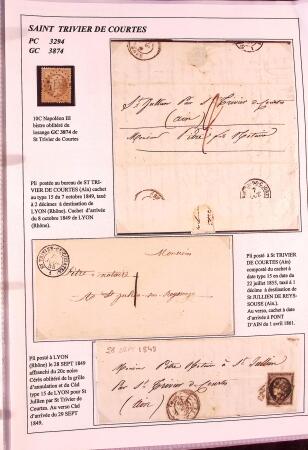 SAINT TRIVIER DE COURTES
PC 3294
GC 3874
10C Napoléon III
bistre oblitéré du
losange GC 3874 de
St Trivier de Courtes
Pli postée au bureau de ST TRI-
VIER DE COURTES (Ain) cachet
au type 15 du 7 octobre 1849, taxé
à 2 décimes à destination de
LYON (Rhône). Cachet d'arrivée
du 8 octobre 1849 de LYON
(Rhône).
St Jullien Par St Trivier de Courtes
(ain)
Monsieur Pitre Notaire
Monsieur
Pitre notaire
à St Julien sur Reyssouze
Pli posté à St TRIVIER
DE COURTES (Ain)
composté du cachet à
date type 15 en date du
22 juillet 1855, taxé à 1
décime à destination de
St JULLIEN DE REYS-
SOUSE (Ain.)
Au verso, cachet à date
d'arrivée à PONT
D'AIN du 1 avril 1861.
Pli posté à LYON
(Rhône) le 28 SEPT 1849
affranchi du 20c noir
Cérès oblitéré de la grille
d'annulation et du Càd
type 15 de LYON pour St
Jullien par St Trivier de
Courtes. Au verso Càd
d'arrivée du 29 SEPT
1849.
28 SEPT 1849
Monsieur Pitre Notaire à St Jullien
Par St Trivier de Courtes
(ain)